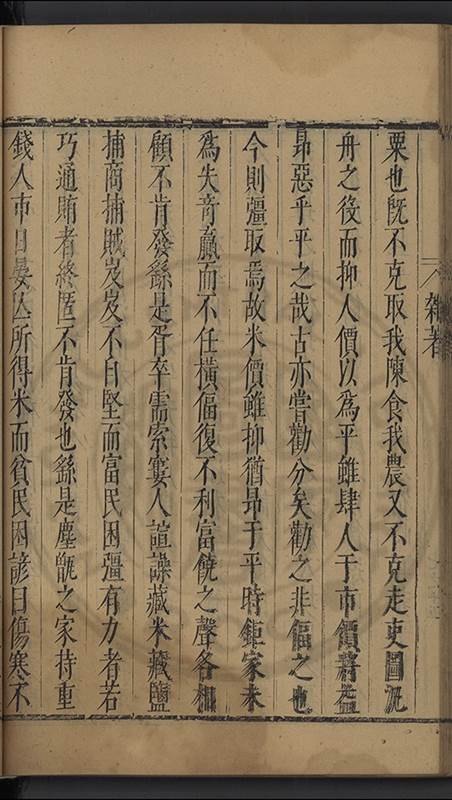 雜著
粟也旣不克取我陳食我農又不克走吏圖汎
舟之役而抑人價以為平雖肆人于市價將益
昂惡乎平之哉古亦嘗勸分矣勸之非偪之也
今則彊取焉故米價雖抑猶昂于平時鉅家未
為失竒贏而不任橫偪復不利富饒之聲各相
顧不肯發繇是胥卒需索寠人諠譟藏米藏鹽
捕商捕賊岌岌不自堅而富民困彊有力者若
巧通賄者終匿不肯發也繇是塵甑之家持重
錢入市日晏亾所得米而貧民困諺曰傷寒不